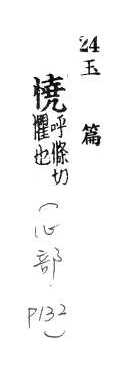 24
玉篇
憢呼條切
懼也
(心部.
P132)